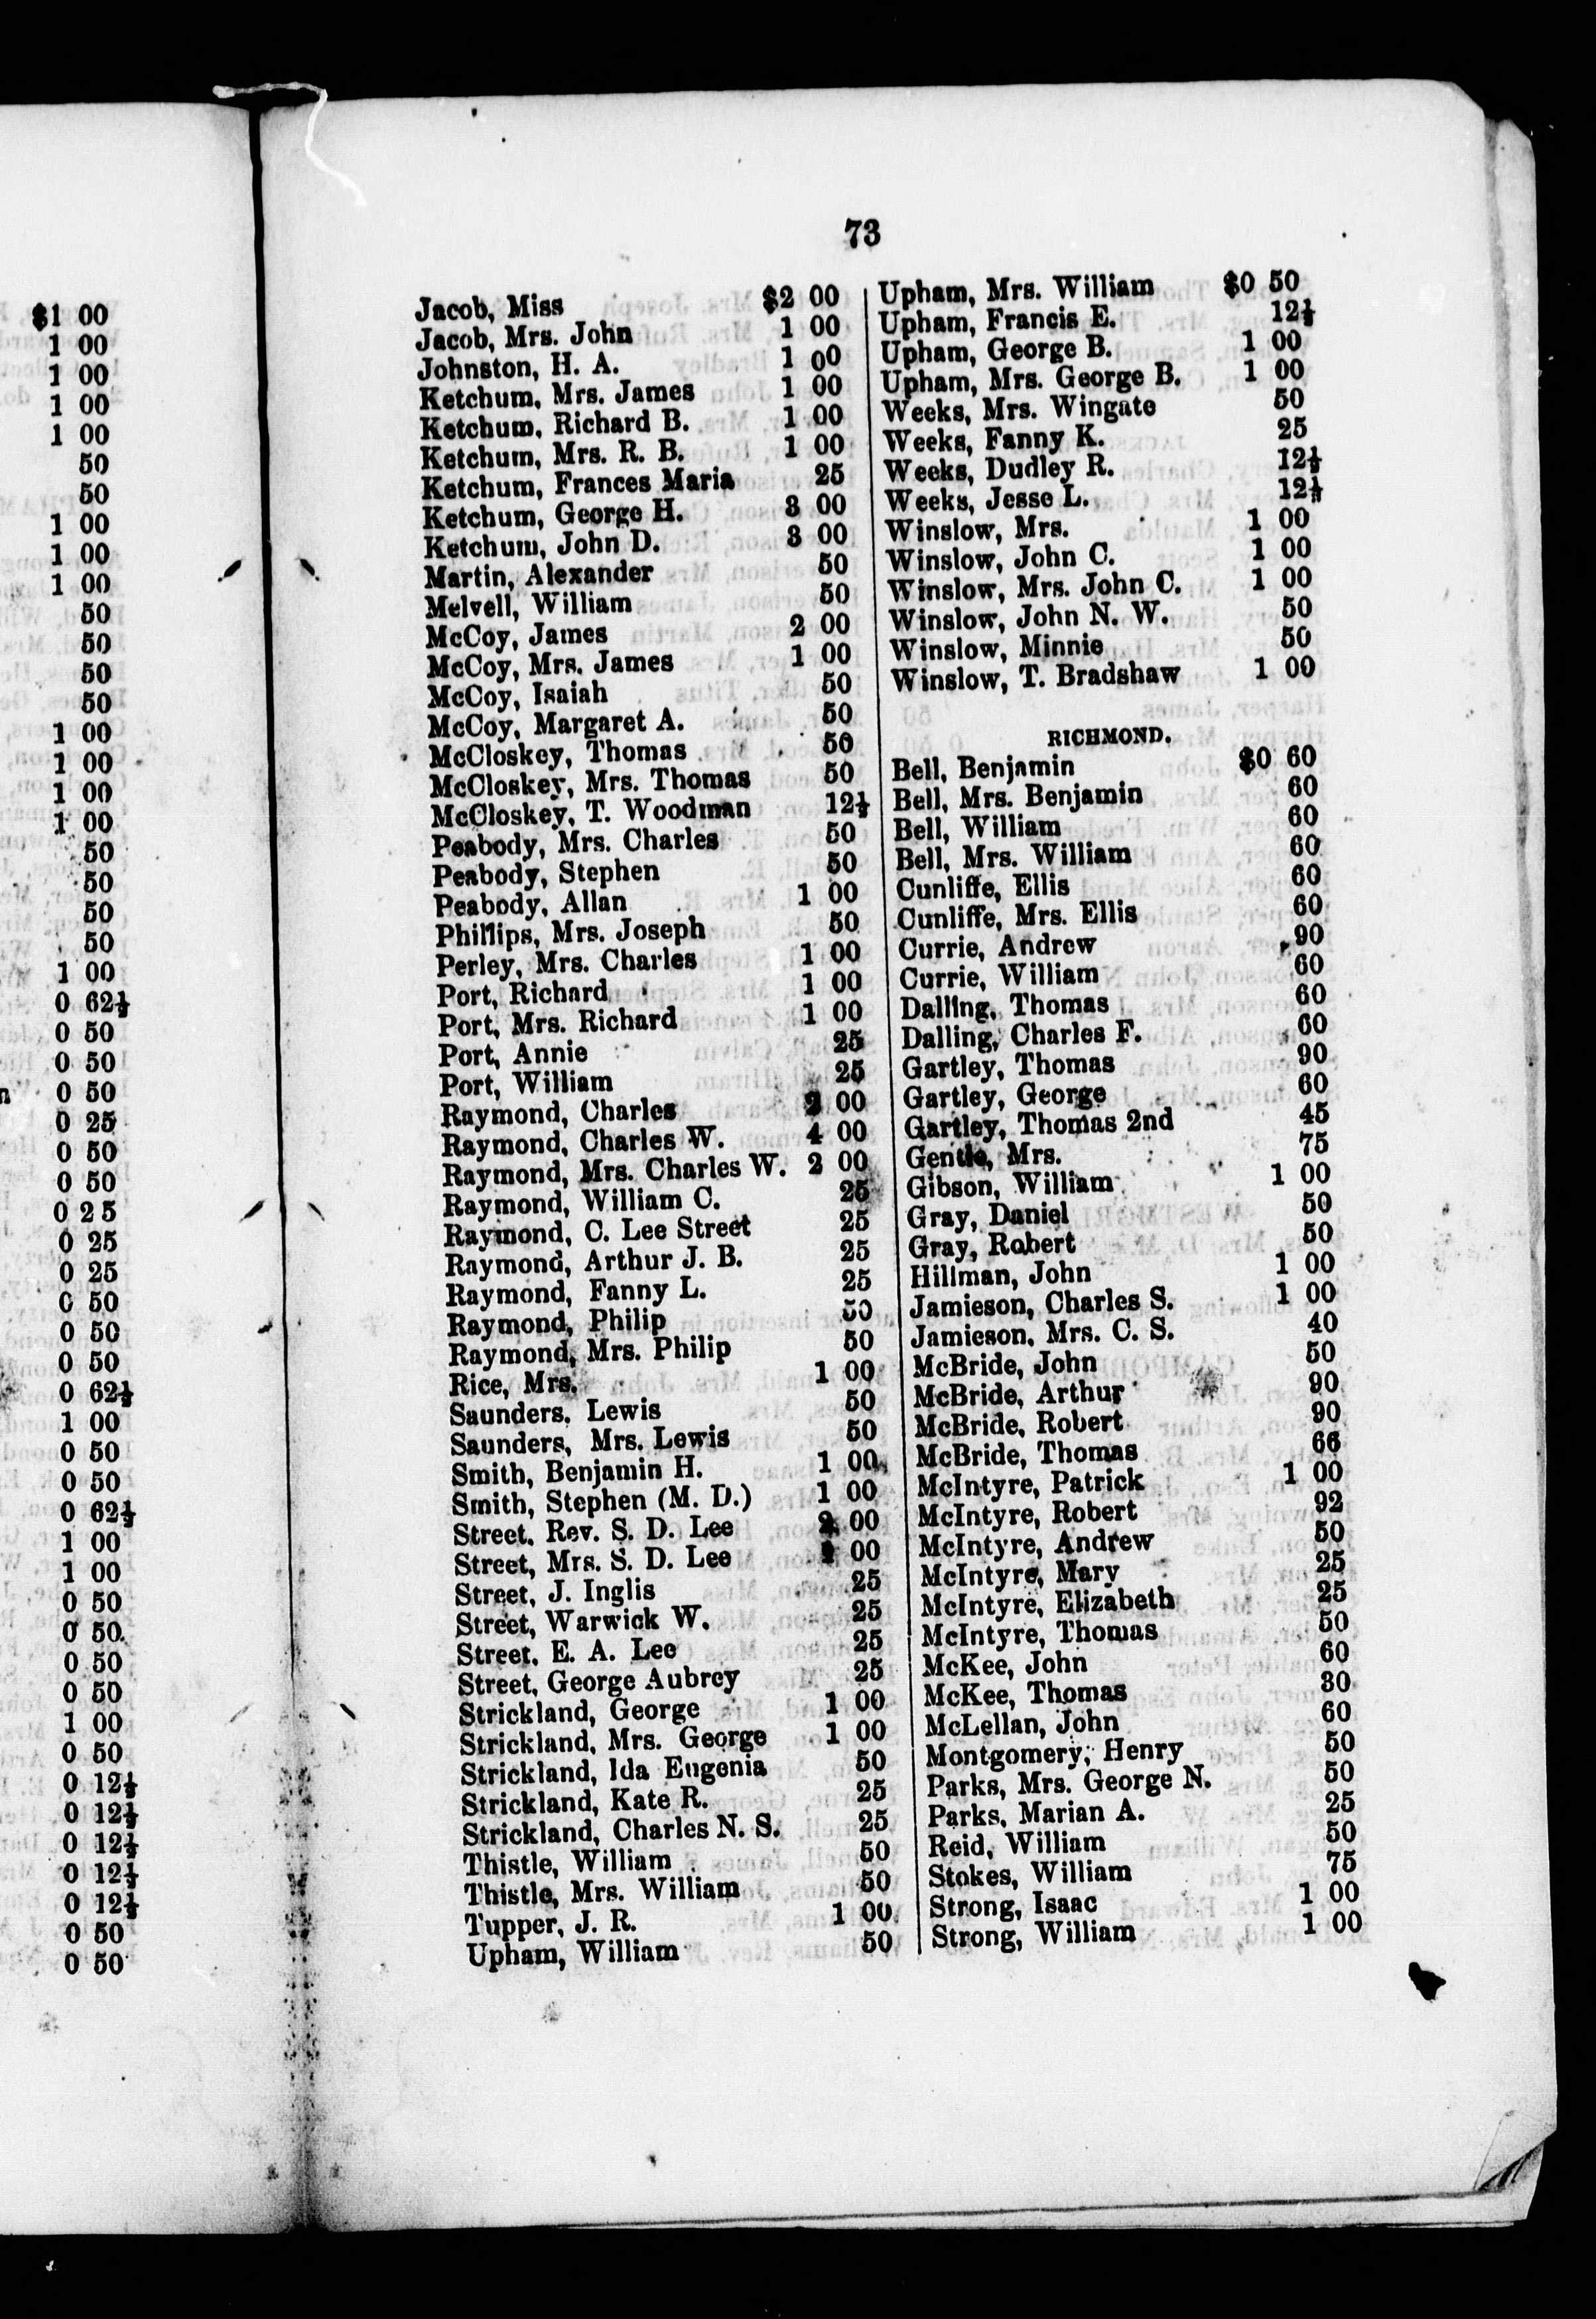 $1 00
1 00
1 00
1 00
1 00
50
50
1 00
1 00
1 00
50
50
50
50
1 00
1 00
1 00
1 00
50
50
50
50
1 00
0 62½
0 50
0 50
0 50
0 25
0 50
0 50
0 25
0 25
0 25
0 50
0 50
0 50
0 62½
1 00
0 50
0 50
0 62½
1 00
1 00
0 50
0 50
0 50
0 50
1 00
0 50
0 12½
0 12½
0 12½
0 12½
0 12½
0 50
0 50
73
Jacob, Miss $2 00
Jacob, Mrs. John 1 00
Johnston, H. A. 1 00
Ketchum, Mrs. James 1 00
Ketchum, Richard B. 1 00
Ketchum, Mrs. R. B. 1 00
Ketchum, Frances Maria 25
Ketchum, George H. 3 00
Ketchum, John D. 3 00
Martin, Alexander 50
Melvell, William 50
McCoy, James 2 00
McCoy, Mrs. James 1 00
McCoy, Isaiah 50
McCoy, Margaret A. 50
McCloskey, Thomas 50
McCloskey, Mrs. Thomas 50
McCloskey, T. Woodman 12½
Peabody, Mrs. Charles 50
Peabody, Stephen 50
Peabody, Allan 1 00
Phillips, Mrs. Joseph 50
Perley, Mrs. Charles 1 00
Port, Richard 1 00
Port, Mrs. Richard 1 00
Port, Annie 25
Port, William 25
Raymond, Charles 2 00
Raymond, Charles W. 4 00
Raymond, Mrs. Charles W. 2 00
Raymond, William C. 25
Raymond, C. Lee Street 25
Raymond, Arthur J. B. 25
Raymond, Fanny L. 25
Raymond, Philip 50
Raymond, Mrs. Philip 50
Rice, Mrs. 1 00
Saunders, Lewis 50
Saunders, Mrs. Lewis 50
Smith, Benjamin H. 1 00
Smith, Stephen (M. D.) 1 00
Street, Rev. S. D. Lee 2 00
Street, Mrs. S. D. Lee 00
Street, J. Inglis 25
Street, Warwick W. 25
Street, E. A. Lee 25
Street, George Aubrey 25
Strickland, George 1 00
Strickland, Mrs. George 1 00
Strickland, Ida Eugenia 50
Strickland, Kate R. 25
Strickland, Charles N. S. 25
Thistle, William 50
Thistle, Mrs. William 50
Tupper, J. R. 1 00
Upham, William 50
Upham, Mrs. William $0 50
Upham, Francis E. 12½
Upham, George B. 1 00
Upham, Mrs. George B. 1 00
Weeks, Mrs. Wingate 50
Weeks, Fanny K. 25
Weeks, Dudley R. 12½
Weeks, Jesse L. 12½
Winslow, Mrs. 1 00
Winslow, John C. 1 00
Winslow, Mrs. John C. 1 00
Winslow, John N. W. 50
Winslow, Minnie 50
Winslow, T. Bradshaw 1 00
RICHMOND.
Bell, Benjamin $0 60
Bell, Mrs. Benjamin 60
Bell, William 60
Bell, Mrs. William 60
Cunliffe, Ellis 60
Cunliffe, Mrs. Ellis 60
Currie, Andrew 90
Currie, William 60
Dalling, Thomas 60
Dalling, Charles F. 60
Gartley, Thomas 90
Gartley, George 60
Gartley, Thomas 2nd 45
Gentle, Mrs. 75
Gibson, William 1 00
Gray, Daniel 50
Gray, Robert 50
Hillman, John 1 00
Jamieson, Charles S. 1 00
Jamieson, Mrs. C. S. 40
McBride, John 50
McBride, Arthur 90
McBride, Robert 90
McBride, Thomas 66
McIntyre, Patrick 1 00
McIntyre, Robert 92
McIntyre, Andrew 50
McIntyre, Mary 25
McIntyre, Elizabeth 25
McIntyre, Thomas 50
McKee, John 60
McKee, Thomas 30
McLellan, John 60
Montgomery, Henry 50
Parks, Mrs. George N. 50
Parks, Marian A. 25
Reid, William 50
Stokes, William 75
Strong, Isaac 1 00
Strong, William 1 00